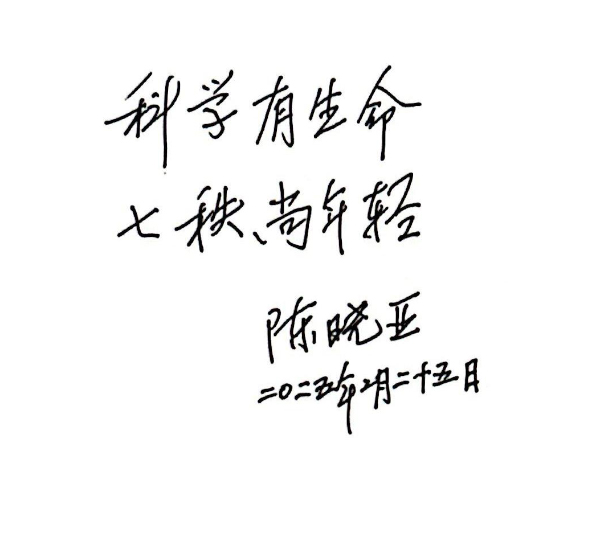 科学有生命
七秩、尚年轻
陈晓亚
二〇二五年2月二十五日